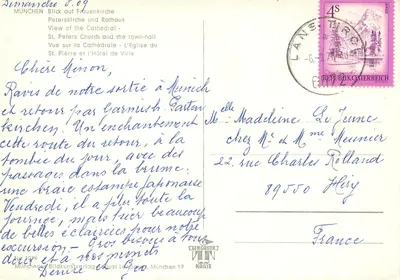 Dimanche
MÜNCHEN Blick auf Frauenkirche
Peterskirche und Rathaus
View of the Cathedral -
St. Peters Church and the town-hall
Vue sur la Cathédrale - L'Eglise de
St. Pierre et l'Hôtel de Ville
4S
REPUBLIK ÖSTERREICH
Chère
Ravis de notre sortie à Munich
et retour par Garmish. Parten
kirchen. Un enchantement
cette route du retour, à la
tombée du jour, avec des
paysages dans la brume.
une vraie estampe japonaise
Vendredi, il a plu toute la
journée, mais hier beaucoup
de belles éclaircies pour notre
excursion - Gros bisous à tous
dont et à nos
Denise et
Melle Madeleine Le Jeune
chez Mr et Mme Meunier
22, rue Charles Rolland
89550 Héry
France
München 19